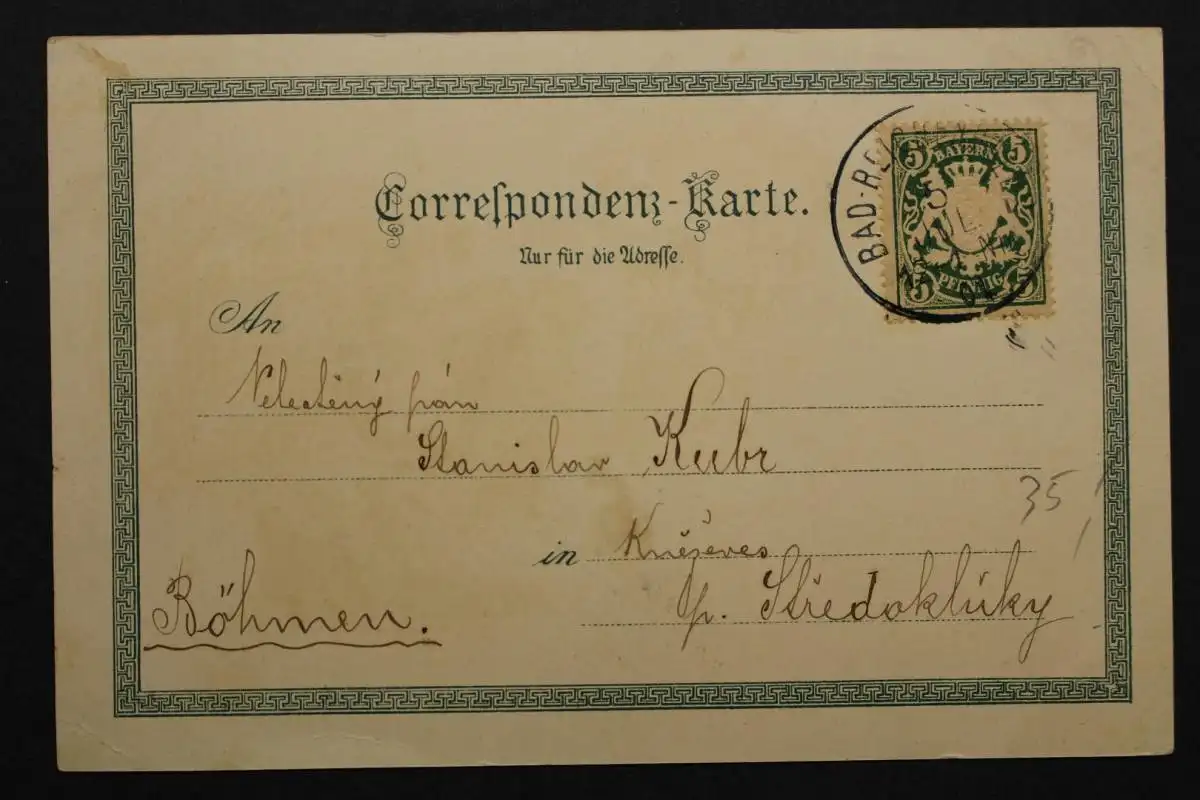 Correspondenz-Karte.
Nur für die Adresse.
5 BAYERN 5
5 PFENNIG 5
BAD-
5
JUL
An
Velectěný pán
Stanislav Kubr
in Kněževes
p. Středokluky
Böhmen.
35